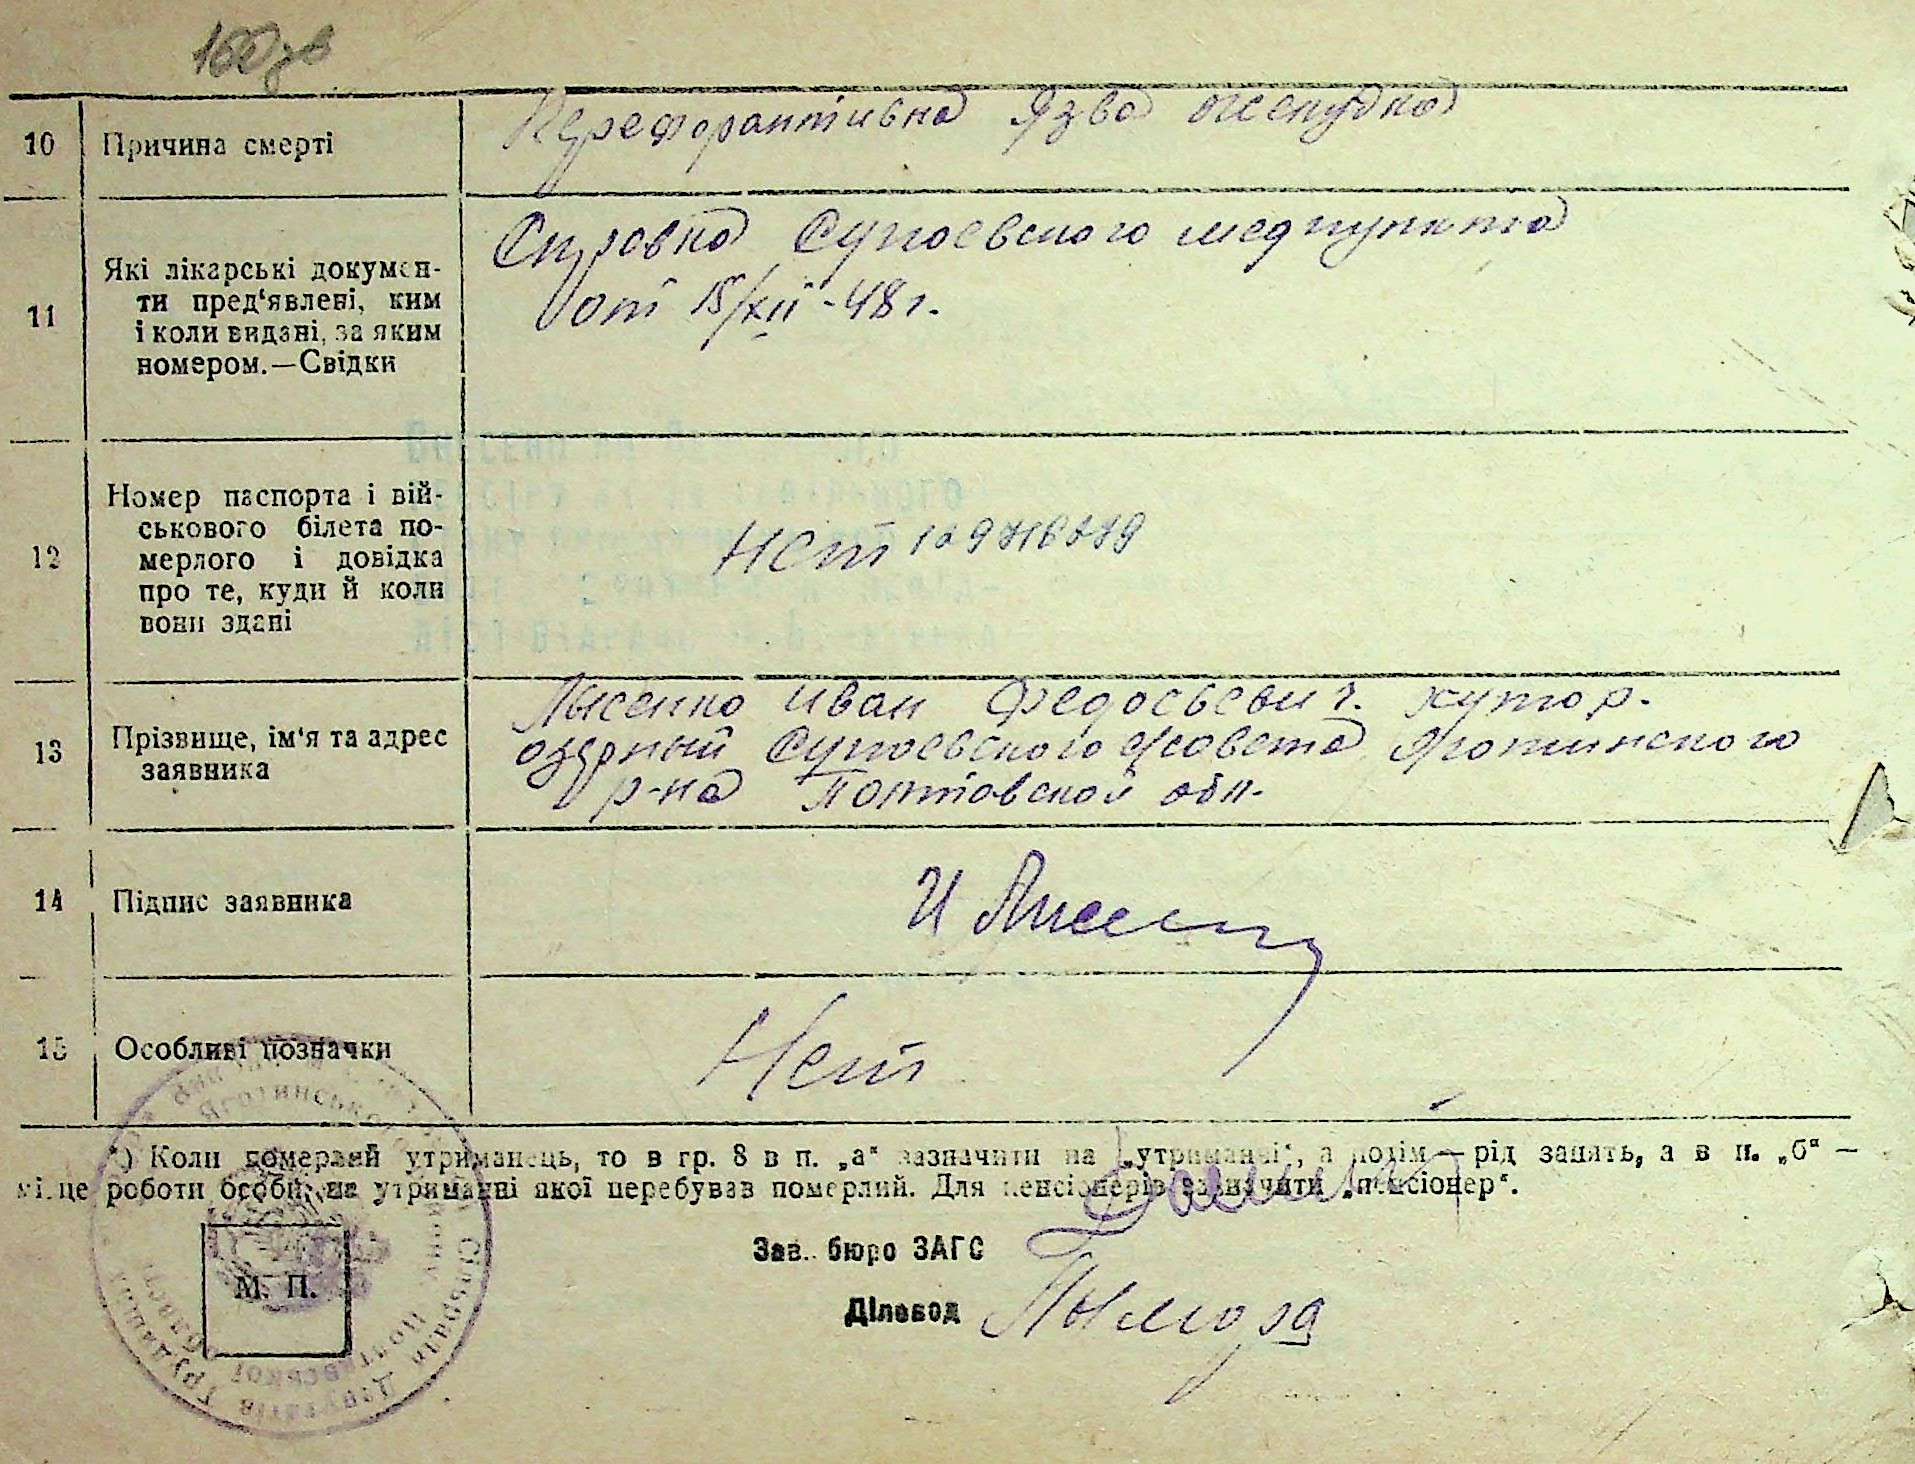 160 зв
10 Причина смерті Перефоративна Язва желудка
11 Які лікарські докумен-
ти пред‘явлені, ким
і коли видані, за яким
номером.—Свідки
Справка Супоевского медпункта
от 15/XII-48 г.
12 Номер паспорта і вій-
ськового білета по-
мерлого і довідка
про те, куди й коли
вони здані
Нет
13 Прізвище, ім‘я та адрес
заявника
Лысенко Иван Федосьевич. хутор.
озерный Супоевского с/совета Яготинского
р-на Полтавской обл.
14 Підпис заявника И Лысен
15 Особливі позначки Нет
*) Коли померлий утриманець, то в гр. 8 в п. „а“ зазначити на „утриманні“, а потім — рід занять, а в п. „б“ —
місце роботи особи, на утриманні якої перебував померлий. Для пенсіонерів зазначити „пенсіонер“.
Зав. бюро ЗАГС
Діловод
М. П.